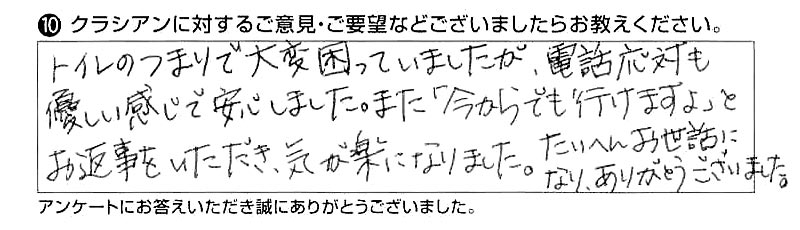 ⑩ クラシアンに対するご意見・ご要望などございましたらお教えください。
トイレのつまりで大変困っていましたが、電話応対も
優しい感じで安心しました。また「今からでも行けますよ」と
お返事をいただき、気が楽になりました。たいへんお世話に
なり、ありがとうございました。
アンケートにお答えいただき誠にありがとうございました。